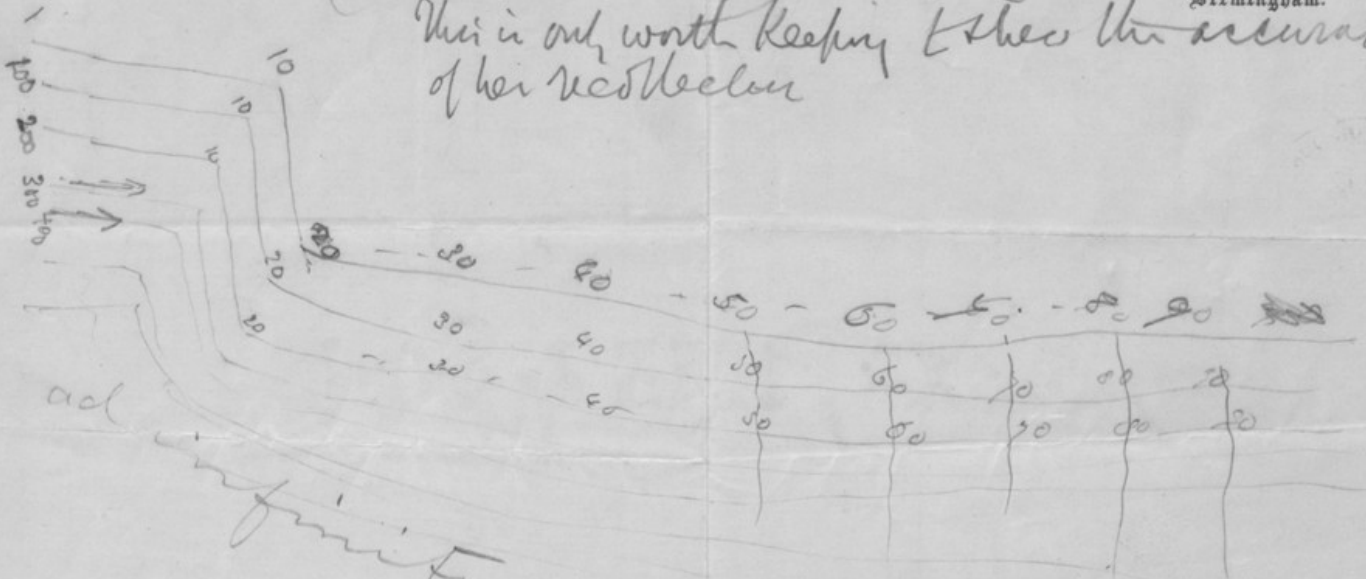 Birmingham.
This is only worth keeping to shew the accura
of her recollection
1
100
200
300
400
10
10
10
20
20
30
40
50
60
80
90
30
40
50
60
70
80
20
30
40
50
60
70
80
90
ad
infinit